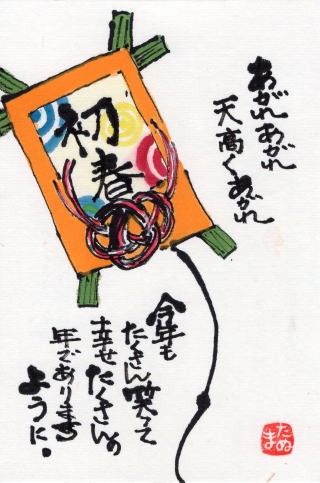 あがれあがれ
天高くあがれ
初春
今年も
たくさん笑って
幸せたくさんの
年であります
ように。
たぬま